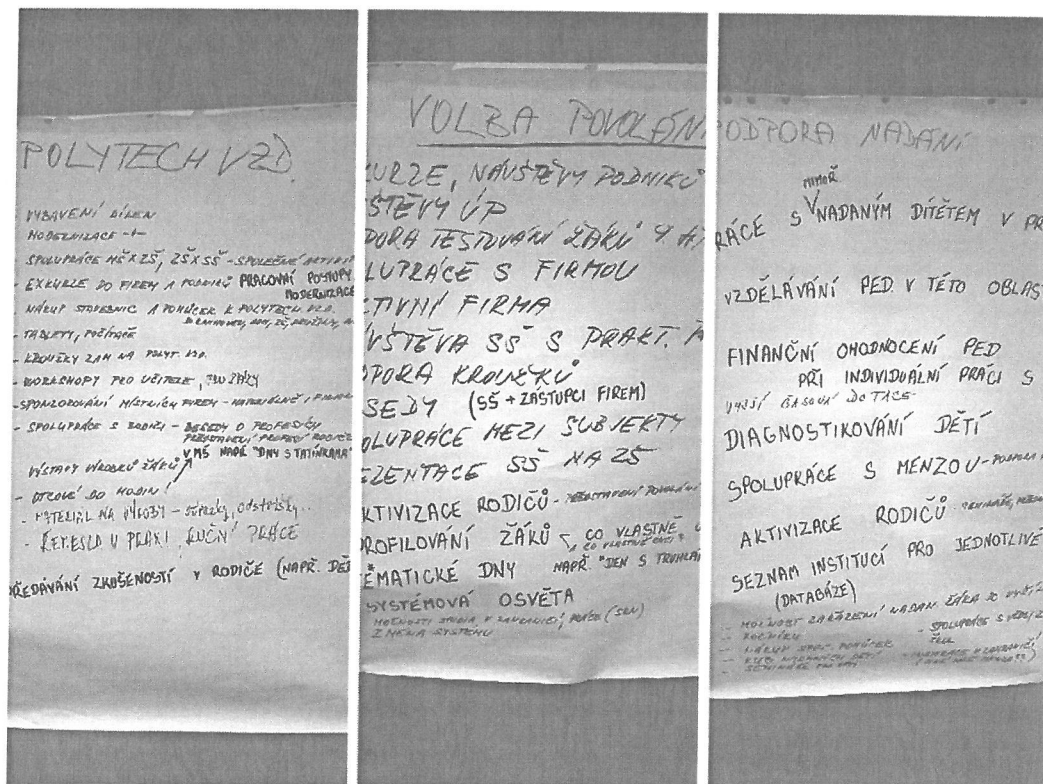 POLYTECH VZD.
- VYBAVENÍ DÍLEN
MODERNIZACE -"-
- SPOLUPRÁCE MŠ X ZŠ, ZŠ X SŠ - SPOLEČNÉ
- EXKURZE DO FIREM A PODNIKŮ PRACOVNÍ POSTUPY
MODERNIZACE
- NÁKUP STAVEBNIC A POMŮCEK K POLYTECH. VZD.
- TABLETY, POČÍTAČE
- KROUŽKY ZAM NA POLYT. VZD.
- WORKSHOPY PRO UČITELE, PRO ŽÁKY
- SPONZOROVÁNÍ MÍSTNÍCH FIREM - MATERIÁLNĚ I
- SPOLUPRÁCE S RODIČI - BESEDY O PROFESÍCH
PŘEDSTAVENÍ PROFESÍ RODIČŮ
V MŠ NAPŘ. "DNY S TATÍNKAMA"
VÝSTAVY VÝROBKŮ ŽÁKŮ
- OTCOVÉ DO HODIN!
- MATERIÁL NA VÝROBY - odstřižky...
- ŘEMESLA V PRAXI, RUČNÍ PRÁCE
PŘEDÁVÁNÍ ZKUŠENOSTÍ V RODIČE (NAPŘ. DĚD
VOLBA POVOLÁN
KURZE, NÁVŠTĚVY PODNIKŮ
ŠTĚVY ÚP
DORA TESTOVÁNÍ ŽÁKŮ
LUPRÁCE S FIRMOU
KTIVNÍ FIRMA
VŠTĚVA SŠ S PRAKT.
PORA KROUŽKŮ
SEDY (SŠ + ZÁSTUPCI FIREM)
OLUPRÁCE MEZI SUBJEKTY
EZENTACE SŠ NA ZŠ
KTIVIZACE RODIČŮ - PŘEDSTAVENÍ POVOLÁNÍ
PROFILOVÁNÍ ŽÁKŮ CO VLASTNĚ
CO VLASTNĚ CHCI?
ÉMATICKÉ DNY NAPŘ. "DEN S TRUHLÁ
SYSTÉMOVÁ OSVĚTA
MOŽNOSTI STUDIA V ZAHRANIČÍ, PRÁCE
ZMĚNA SYSTÉMU
PODPORA NADÁNÍ
MIMOŘ
RÁCE S NADANÝM DÍTĚTEM V PR
VZDĚLÁVÁNÍ PED. V TÉTO OBLAST
FINANČNÍ OHODNOCENÍ PED
PŘI INDIVIDUÁLNÍ PRÁCI S
VYŠŠÍ ČASOVÁ DOTACE
DIAGNOSTIKOVÁNÍ DĚTÍ
SPOLUPRÁCE S MENZOU - PODPORA
AKTIVIZACE RODIČŮ - SEMINÁŘE,
SEZNAM INSTITUCÍ PRO JEDNOTLIVÉ
(DATABÁZE)
- MOŽNOST ZAŘAZENÍ NADAN. ŽÁKA DO VYŠŠÍ
ROČNÍKU
- NÁKUP SPEC. POMŮCEK